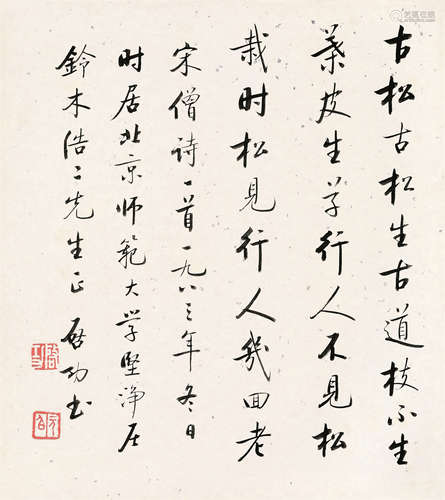 古松古松生古道枝不生
葉皮生草行人不見松
栽时松見行人幾回老
宋僧诗一首一九八三年冬日
时居北京师範大学堅浄居
鈴木浩二先生正 啟功书